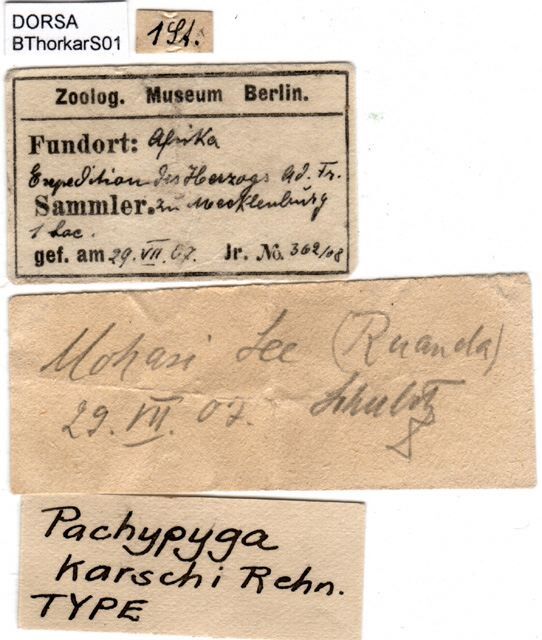 DORSA
BThorkarS01
1 St.
Zoolog. Museum Berlin.
Fundort: Afrika
Expedition des Herzogs Ad. Fr.
Sammler. zu Mecklenburg
1 Lac.
gef. am 29. VII. 07. Jr. No. 362/08
Mohasi See (Ruanda)
29. VII. 07. Schubotz
Pachypyga
karschi Rehn.
TYPE